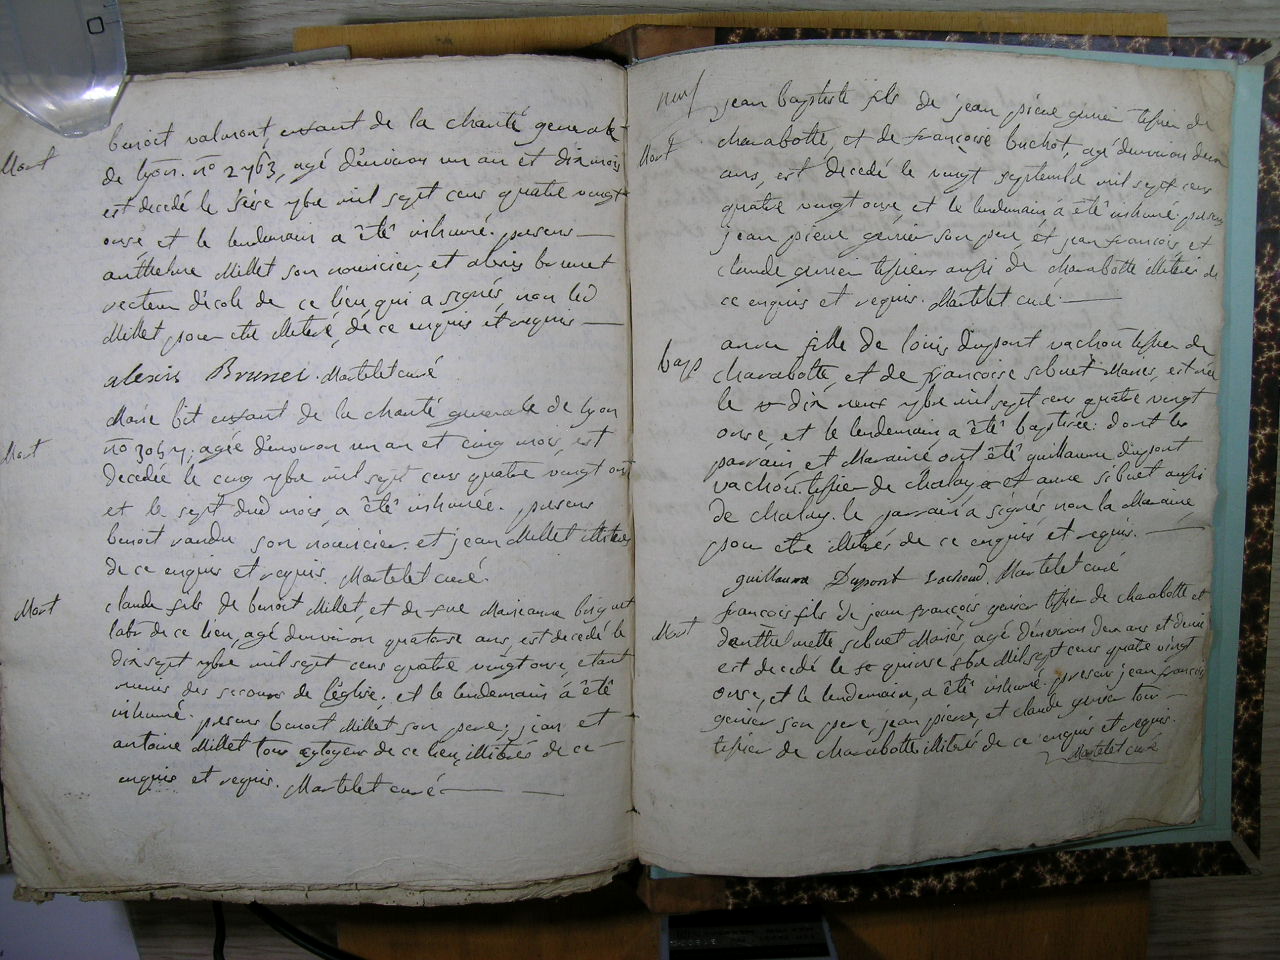 Mort
benoit valmont enfant de la charité generale
de lyon. n° 2763, agé d'environ un an et dix mois
est decedé le seise 7bre mil sept cens quatre vingt
onse et le lendemain a êtê inhumé. presens
anthelme Millet son nouricier, et alexis brunet
recteur d'ecole de ce lieu qui a signés, non led
Millet pour etre illiteré, de ce enquis et requis
alexis Brunet. Martelet curé
Mort
Marie bit enfant de la charité generale de lyon
n° agée d'environ un an et cinq mois, est
decedée le cinq 7bre mil sept cens quatre vingt onse
et le sept dud mois, a êtê inhumée. presens
benoit vandu son nouricier. et jean Millet illiterés
de ce enquis et requis. Martelet curé.
Mort
claude fils de benoit Millet, et de fue Marieanne
labr de ce lieu, agé d'environ quatorse ans, est decedé le
dix sept 7bre mil sept cens quatre vingt onse, etant
munis des secours de l'église, et le lendemain à êtê
inhumé. presens benoit Millet son pere, jean et
antoine Millet tous cytoyens de ce lieu illiterés de ce
enquis et requis. Martelet curé
neuf
Mort
jean baptiste fils de jean pierre genier tissier de
charabotte, et de françoise buchot, agé d'environ deux
ans, est decedé le vingt septembre mil sept cens
quatre vingt onse, et le lendemain à êtê inhumé presens
jean pierre genier son pere, et jean françois, et
claude genier tissiers aussi de charabotte illiterés de
ce enquis et requis. Martelet curé.
bap
anne fille de louis dupont vachou tissier de
charabotte, et de françoise sibuet Mariés, est née
le dix neuf 7bre mil sept cens quatre vingt
onse, et le lendemain a êtê baptisée: dont les
parrain et Maraine ont êtê guillaume dupont
vachou tissier de chaley et anne sibuet aussi
de chaley. le parrain a signés non la Maraine
pour etre illiterés de ce enquis et requis.
guillaume Dupont vachoud. Martelet curé
Mort
françois fils de jean françois genier tissier de charabotte et
d'anthelmette sibuet Mariés, agé d'environ deux ans et demi
est decedé le quinse 8bre Mil sept cens quatre vingt
onse, et le lendemain, a êtê inhumé. presens jean françois
genier son pere, jean pierre, et claude genier tous
tissier de charabotte illiterés de ce enquis et requis.
Martelet curé